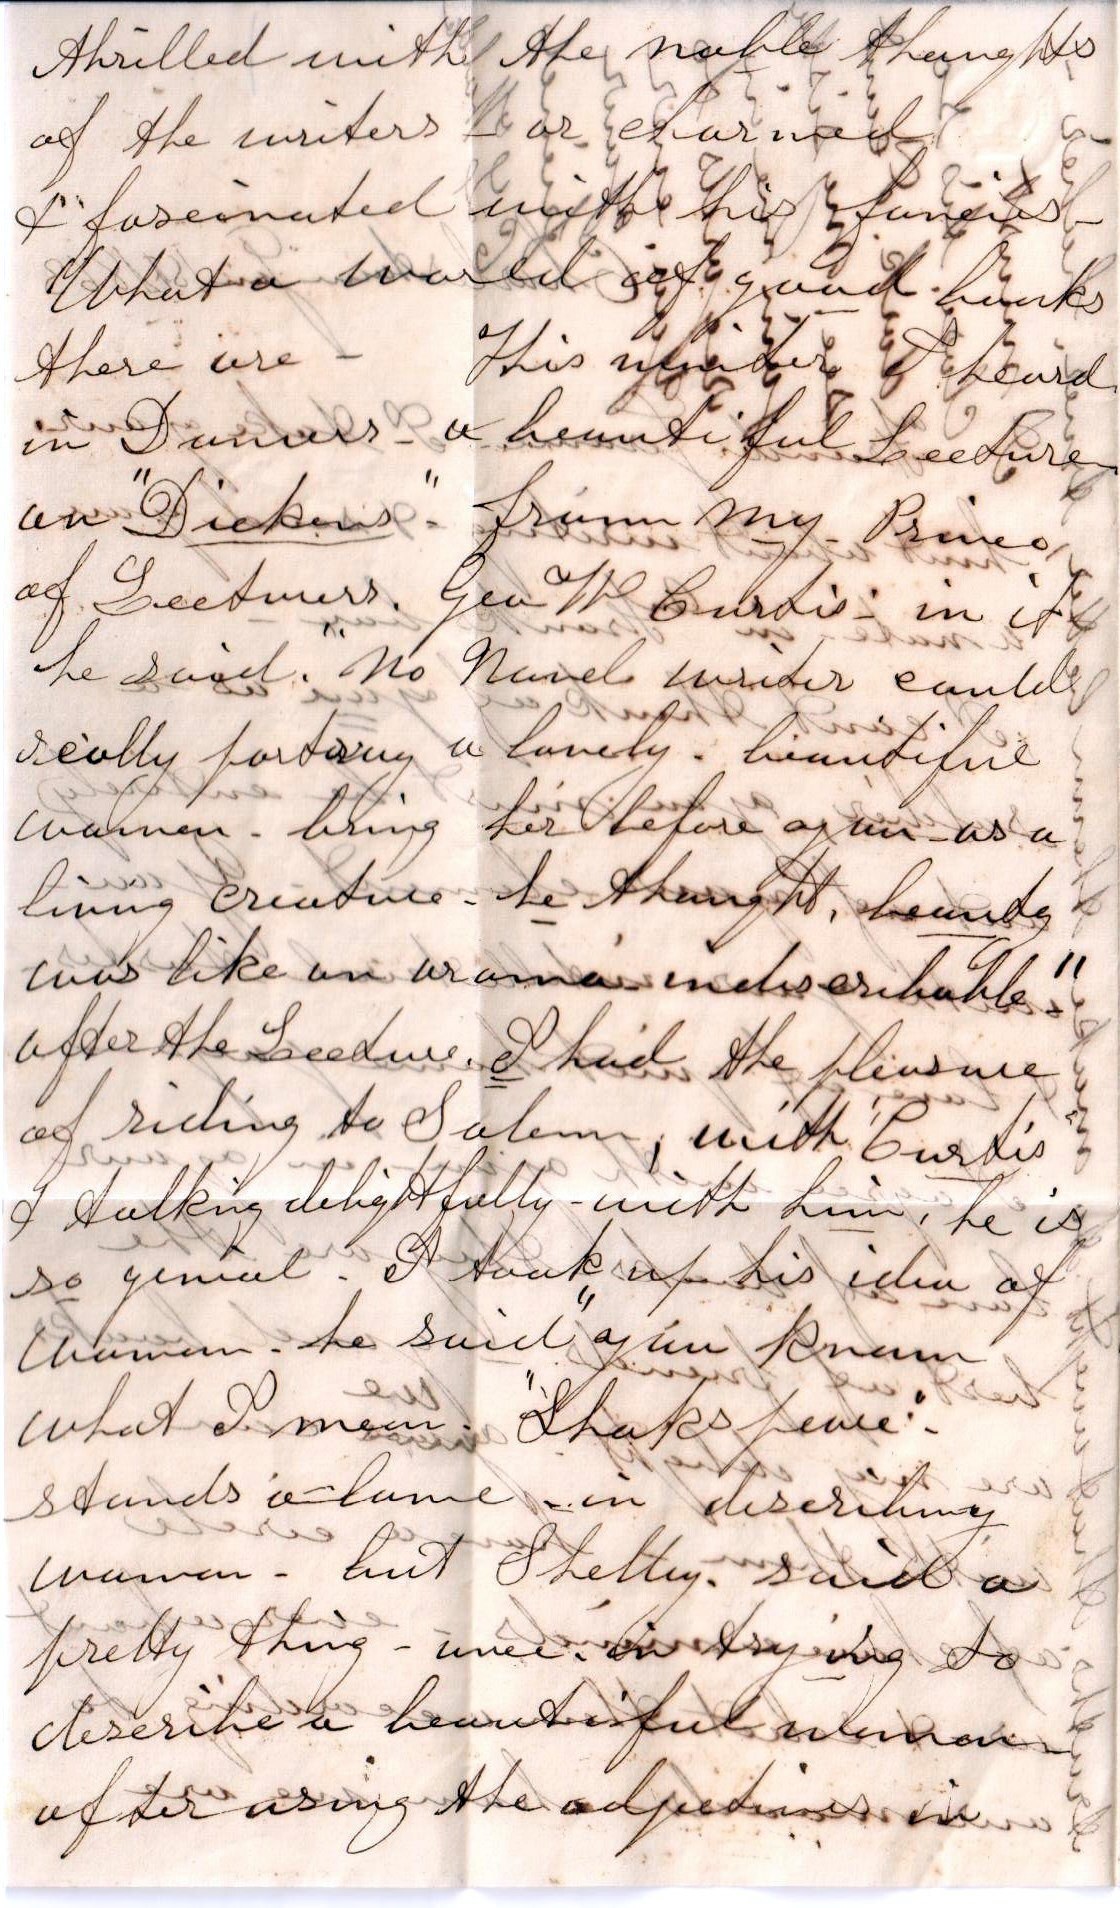 thrilled with the noble thoughts
of the writers - or charmed
& fascinated with his fancies -
What a world of good books
there are - This winter I heard
in Danvers - a beautiful Lecture
on "Dickens" - from my Prince
of Lecturers. Geo W Curtis - in it
he said. "No Novel writer could
really portray a lovely - beautiful
woman - bring her before you - as a
living creature - he thought, beauty
was like an aroma - indiscribable -"
after the Lecture. I had the pleasure
of riding to Salem, with "Curtis"
& talking delightfully - with him, he is
so genial - I took up his idea of
woman - he said "you know
what I mean - "Shakspeare" -
stands a-lone - in describing
woman - but Shelley. said a
pretty thing - once. in trying to
describe a beautiful woman
after using the adjectives in